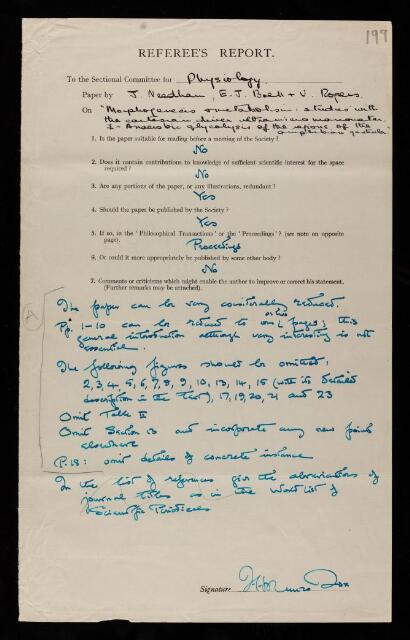 199
REFEREE'S REPORT.
To the Sectional Committee for Physiology
Paper by J. Needham, E. J. Boell + V. Rogers
On "Morphogenesis & metabolism: studies with
the cartesian diver ultramicromanometer.
I - Anaerobic glycolysis of the regions of the
amphibian gastrula"
1. Is the paper suitable for reading before a meeting of the Society?
No
2. Does it contain contributions to knowledge of sufficient scientific interest for the space
required?
No
3. Are any portions of the paper, or any illustrations, redundant?
Yes
4. Should the paper be published by the Society?
Yes
5. If so, in the 'Philosophical Transactions' or the 'Proceedings'? (see note on opposite
page).
Proceedings
6. Or could it more appropriately be published by some other body?
No
7. Comments or criticisms which might enable the author to improve or correct his statement.
(Further remarks may be attached).
A
The paper can be very considerably reduced.
Pp. 1-10 can be reduced to one or two pages; this
general introduction although very interesting is not
essential.
The following figures should be omitted,
2, 3, 4, 5, 6, 7, 8, 9, 10, 13, 14, 15 (with its detailed
description in the text), 17, 19, 20, 21 and 23
Omit Table II
Omit Section 13 and incorporate any new points
elsewhere
P. 18: omit details of concrete instance
In the list of references give the abbreviations of
journal titles as in the World List of
Scientific Periodicals
Signature H. Munro Fox